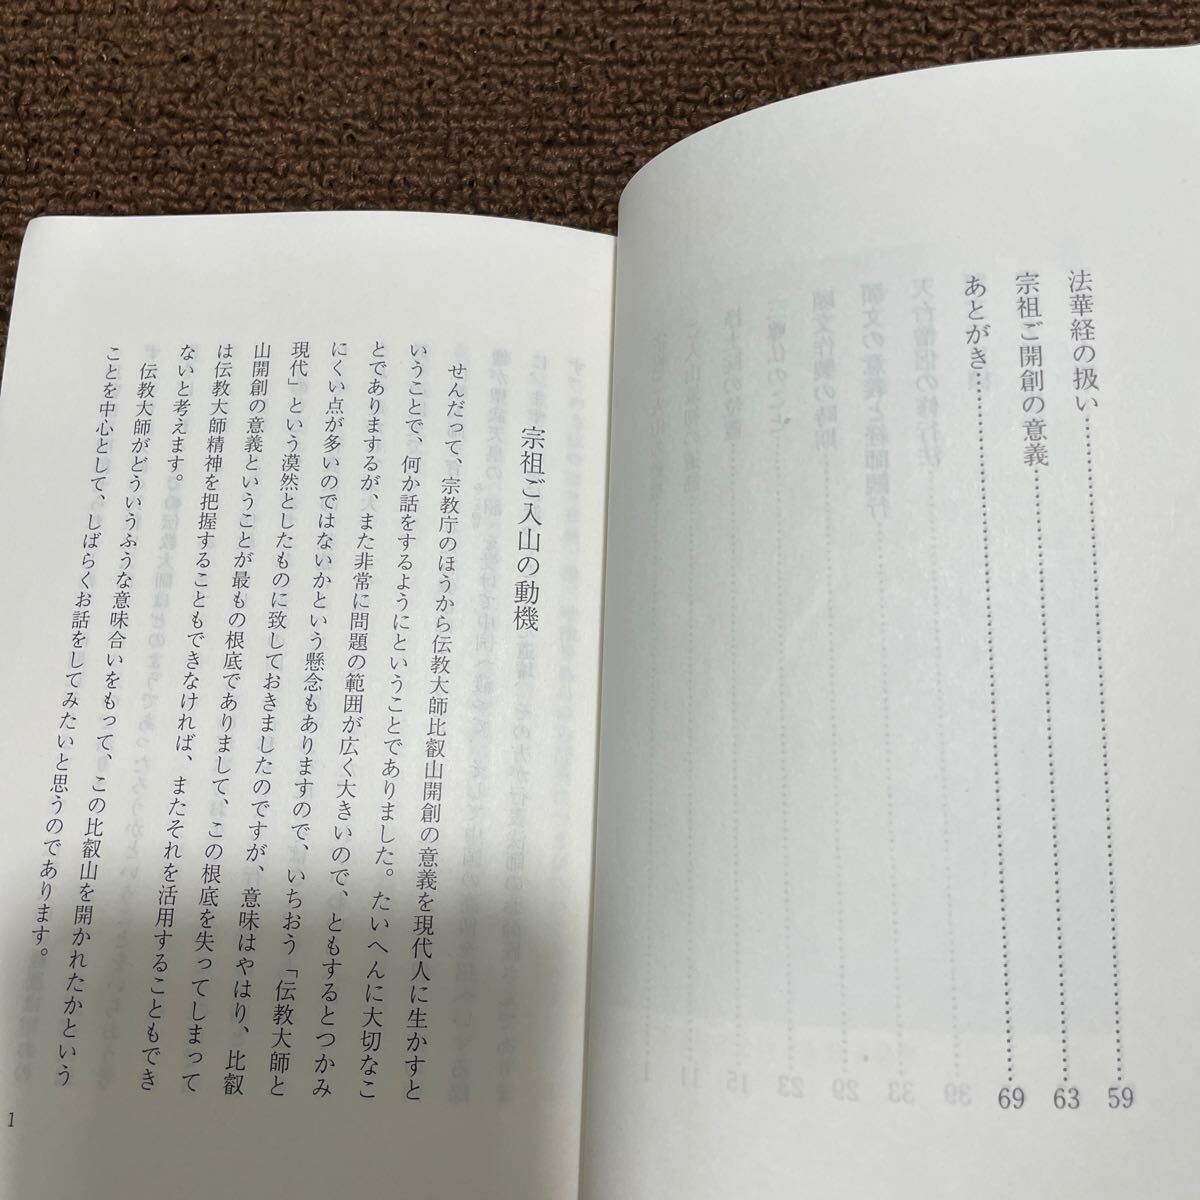 法華経の扱い……………………59
宗祖ご開創の意義……………………63
あとがき……………………69
宗祖ご入山の動機
せんだって、宗教庁のほうから伝教大師比叡山開創の意義を現代人に生かすと
いうことで、何か話をするようにということでありました。たいへんに大切なこ
とでありまするが、また非常に問題の範囲が広く大きいので、ともするとつかみ
にくい点が多いのではないかという懸念もありますので、いちおう「伝教大師と
現代」という漠然としたものに致しておきましたのですが、意味はやはり、比叡
山開創の意義ということが最もの根底でありまして、この根底を失ってしまって
は伝教大師精神を把握することもできなければ、またそれを活用することもでき
ないと考えます。
伝教大師がどういうふうな意味合いをもって、この比叡山を開かれたかという
ことを中心として、しばらくお話をしてみたいと思うのであります。
1